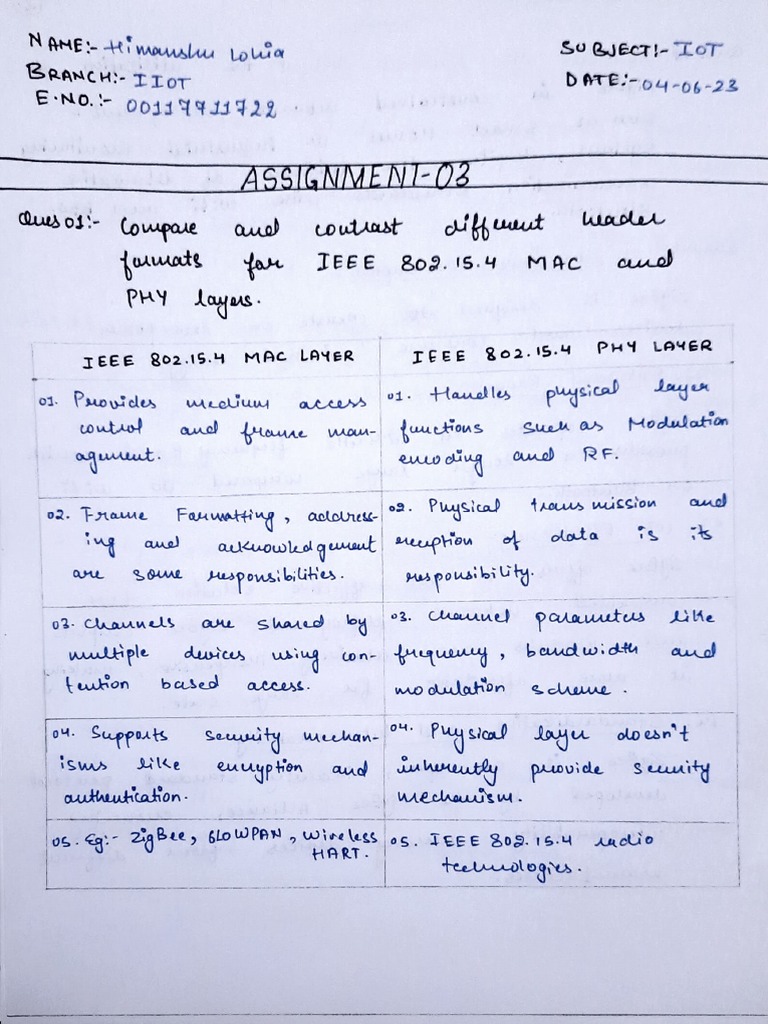 NAME:- Himanshu Lohia
BRANCH:- IIOT
E.NO.:- 00117711722
SUBJECT:- IOT
DATE:- 04-06-23
ASSIGNMENT-03
Ques 01:- Compare and contrast different header
formats for IEEE 802.15.4 MAC and
PHY layers.
IEEE 802.15.4 MAC LAYER
IEEE 802.15.4 PHY LAYER
01. Provides medium access
control and frame man-
agement.
01. Handles physical layer
functions such as Modulation
encoding and RF.
02. Frame Formatting, address-
ing and acknowledgement
are some responsibilities.
02. Physical transmission and
reception of data is its
responsibility.
03. Channels are shared by
multiple devices using con-
tention based access.
03. Channel parameters like
frequency, bandwidth and
modulation scheme.
04. Supports security mechan-
isms like encryption and
authentication.
04. Physical layer doesn't
inherently provide security
mechanism.
05. Eg:- ZigBee, 6LOWPAN, Wireless
HART.
05. IEEE 802.15.4 radio
technologies.